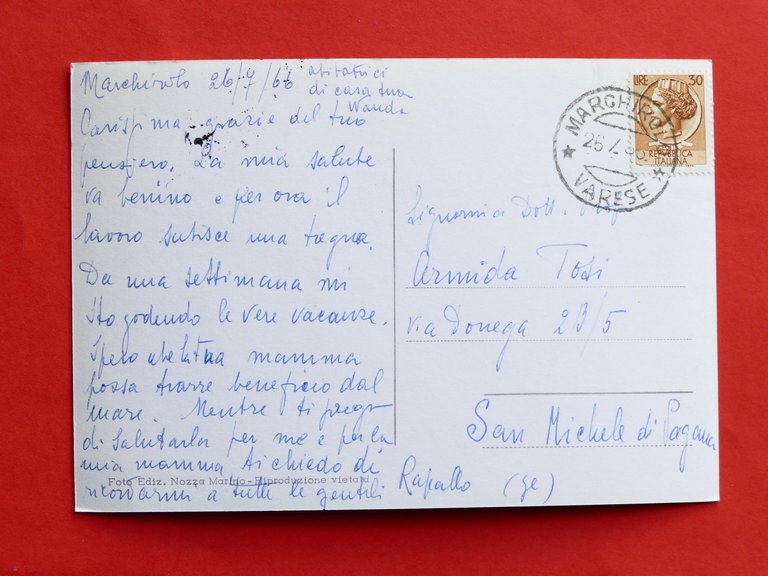 Marchirolo 26/7/66
Carissima, grazie del tuo
pensiero. La mia salute
va benino e per ora il
lavoro subisce una tregua.
Da una settimana mi
sto godendo le vere vacanze.
Spero che la tua mamma
possa trarre beneficio dal
mare. Mentre ti prego
di salutarla per me e per la
mia mamma ti chiedo di
ricordarmi a tutte le gentili
abitatrici
di casa tua
Wanda
Foto Ediz. Nozza Marino - Riproduzione vietata
LIRE 30
REPUBBLICA
ITALIANA
MARCHIROLO
VARESE
Signorina Dott.
Armida Tosi
via Donega 2B/5
San Michele di Pagana
Rapallo (Ge)